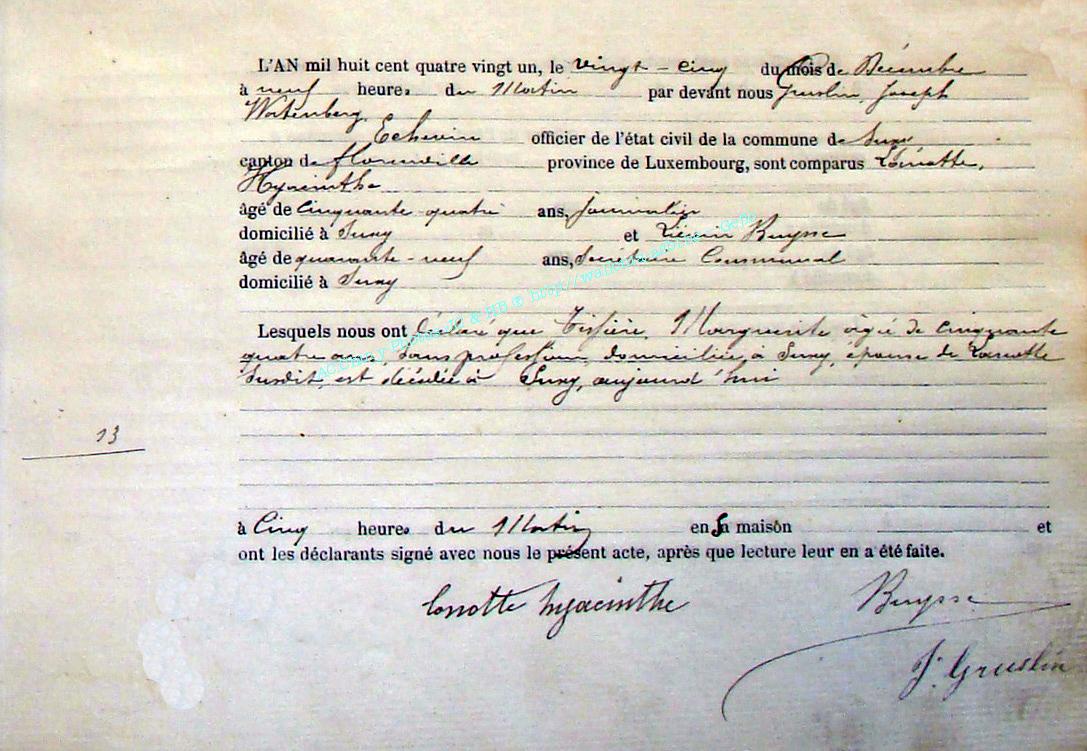 L'AN mil huit cent quatre vingt un, le vingt-cinq du mois de Décembre
à neuf heures du Matin par devant nous Gruslin, Joseph
Echevin officier de l'état civil de la commune de Suxy
canton de florenville province de Luxembourg, sont comparus
Hyacinthe
âgé de cinquante quatre ans, journalier
domicilié à Suxy et Liévin Buysse
âgé de quarante-neuf ans, Secrétaire Communal
domicilié à Suxy
Lesquels nous ont déclaré que Marguerite âgée de cinquante
quatre ans, sans profession, domiciliée à Suxy, épouse de
susdit, est décédée à Suxy, aujourd'hui
13
à Cinq heures du Matin en sa maison et
ont les déclarants signé avec nous le présent acte, après que lecture leur en a été faite.
hyacinthe Buysse
J. Gruslin